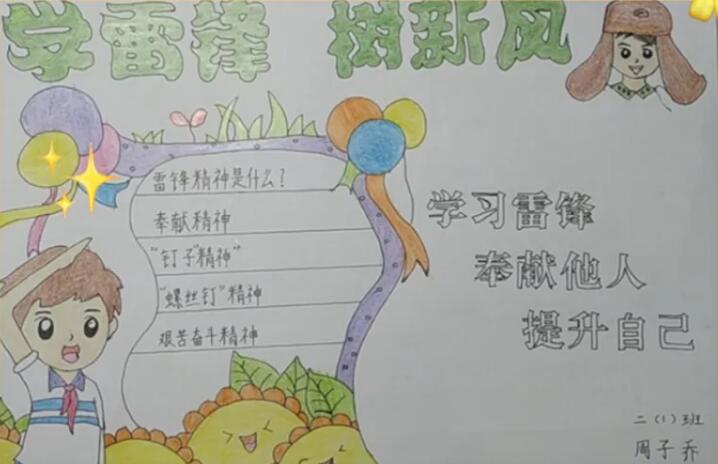 学雷锋 树新风
雷锋精神是什么?
奉献精神
"钉子"精神"
"螺丝钉"精神
艰苦奋斗精神
学习雷锋
奉献他人
提升自己
二(1)班
周子乔